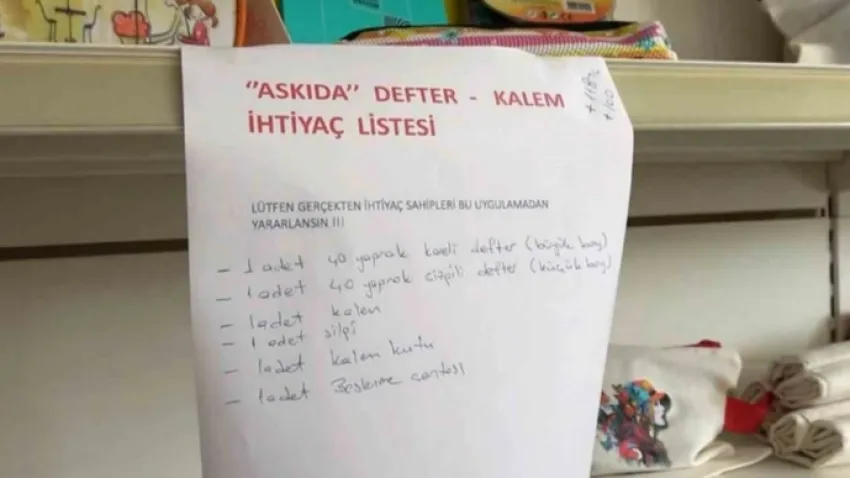 "ASKIDA" DEFTER - KALEM
İHTİYAÇ LİSTESİ
+118
+100
LÜTFEN GERÇEKTEN İHTİYAÇ SAHİPLERİ BU UYGULAMADAN
YARARLANSIN !!!
- 1 adet 40 yaprak kareli defter (büyük boy)
- 1 adet 40 yaprak çizgili defter (küçük boy)
- 1 adet kalem
- 1 adet silgi
- 1 adet kalem kutu
- 1 adet Beslenme çantası